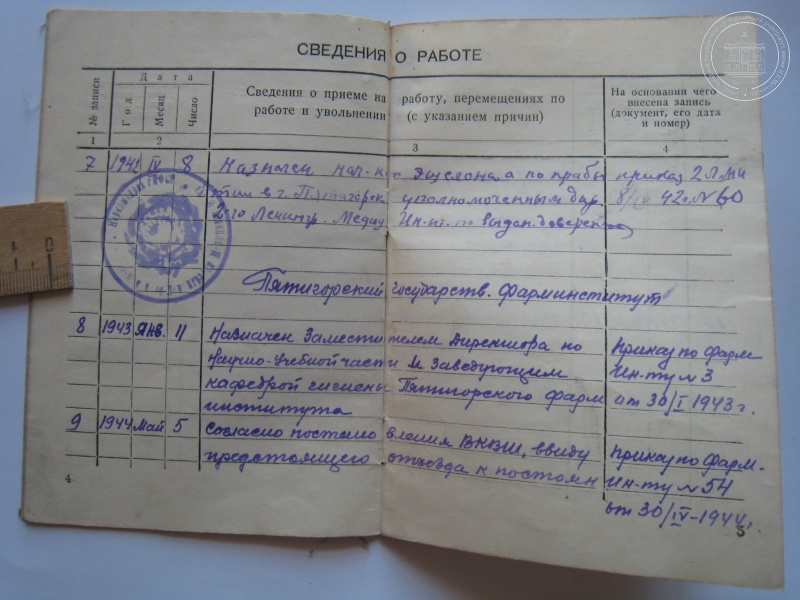 СВЕДЕНИЯ О РАБОТЕ
№ записи
Дата
Год
Месяц
Число
Сведения о приеме на работу, перемещениях по
работе и увольнении (с указанием причин)
На основании чего
внесена запись
(документ, его дата
и номер)
1 2 3 4
7 1942 IV 8 Назначен нач-к. эшелона, а по прибы приказ 2 ЛМИ
тии в г. Пятигорск уполномоченным дир. 8/IV 42 г. № 60
2-го Ленингр. Медиц. Ин-та
Пятигорский государств. фарминститут
8 1943 Янв. 11 Назначен Заместителем Директора по приказ по фарм
Научно-Учебной части и Заведующим Ин-ту № 3
кафедрой гигиены Пятигорского фарм от 30/I 1943 г.
института
9 1944 Май 5 Согласно постановления ВКВШ, ввиду приказ по фарм.
предстоящего отъезда к постоян Ин-ту № 54
от 30/IV-1944 г.
4
5